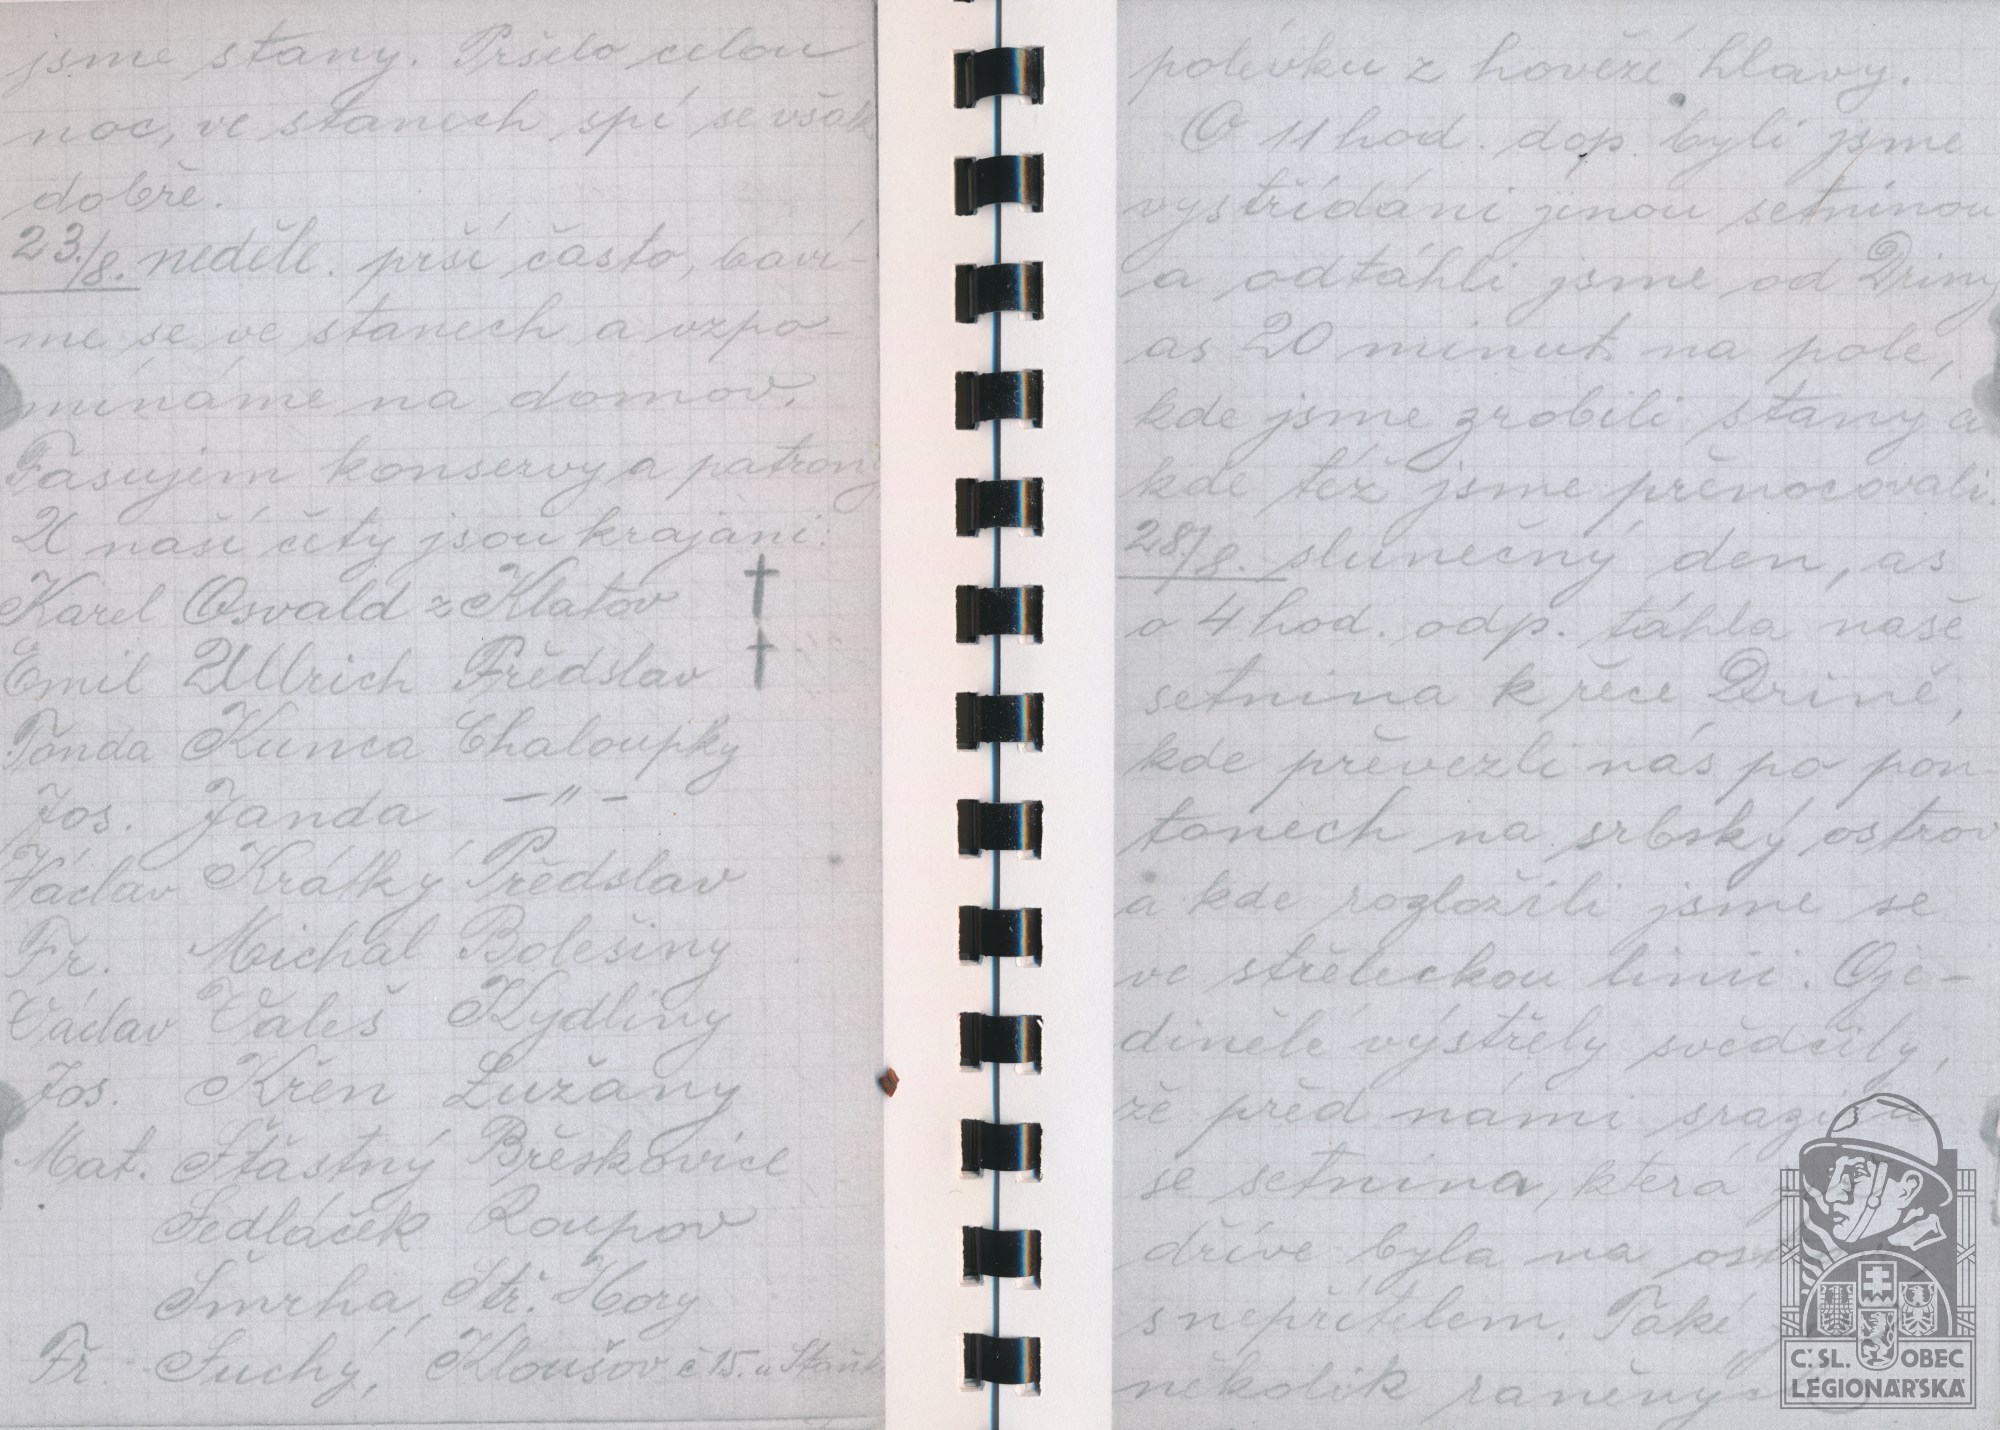 jsme stany. Pršelo celou
noc, ve stanech spí se však
dobře.
23./8. neděle. prší často, baví-
me se ve stanech a vzpo-
mínáme na domov.
Fasujem konservy a patrony
U naší čéty jsou krajáni:
Karel Osvald z Klatov †
Emil Ullrich Předslav †
Tonda Kunca Chaloupky
Jos. Janda —„—
Václav Krátký Předslav
Fr. Michal Bolešiny
Václav Valeš Kydliny
Jos. Křen Lužany
Mat. Šťastný Břeskovice
Sedláček Roupov
Šmrha, Stř. Hory
Fr. Suchý, Kloušov č 15. u
polévku z hovězí hlavy.
O 11 hod. dop. byli jsme
vystřídáni jinou setninou
a odtáhli jsme od Driny
as 20 minut na pole,
kde jsme zrobili stany a
kde též jsme přenocovali.
28./8. slunečný den, as
o 4 hod. odp. táhla naše
setnina k řece Drině,
kde převezli nás po pon-
tonech na srbský ostrov
a kde rozložili jsme se
ve střeleckou linii. Oje-
dinělé výstřely svědčily,
že před námi
se setnina, která
dříve byla na
s nepřítelem. Také
několik
Č. SL. OBEC
LEGIONÁŘSKÁ